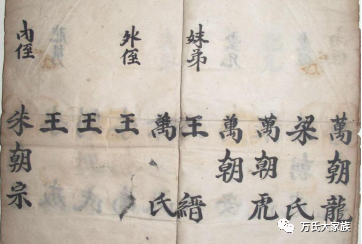 萬朝龍
梁氏
萬朝虎
萬朝
妹弟 王縉
萬氏
外侄 王
王
王
内侄 朱朝宗
万氏大家族